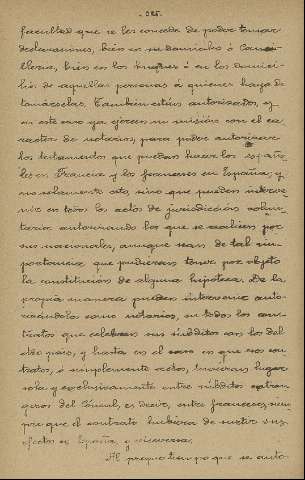 - 985 -
facultad que se les conceda de poder tomar
declaraciones, bien en su domicilio ó Canci-
llerias, bien en los buques ó en los domici-
lios de aquellas personas á quienes hayan de
tomárselas. Tambien están autorizados, y
en este caso ya ejercen su misión con el ca-
racter de notarios, para poder autorizar
los testamentos que puedan hacer los españo-
les en Francia y los franceses en España; y
no solamente esto, sino que pueden interve-
nir en todos los actos de jurisdicción volun-
taria autorizando los que se realicen por
sus nacionales, aunque sean de tal im-
portancia que pudieran tener por objeto
la constitución de alguna hipoteca. De la
propia manera pueden intervenir auto-
rizándolos como notarios, en todos los con-
tratos que celebran sus súbditos con los del
otro pais, y hasta en el caso en que esos con-
tratos, ó simplemente actos, tuvieran lugar
sola y exclusivamente entre súbditos extran-
geros del Cónsul, es decir, entre franceses, siem-
pre que el contrato hubiera de surtir sus
efectos en España y viceversa.
Al propio tiempo que se auto-